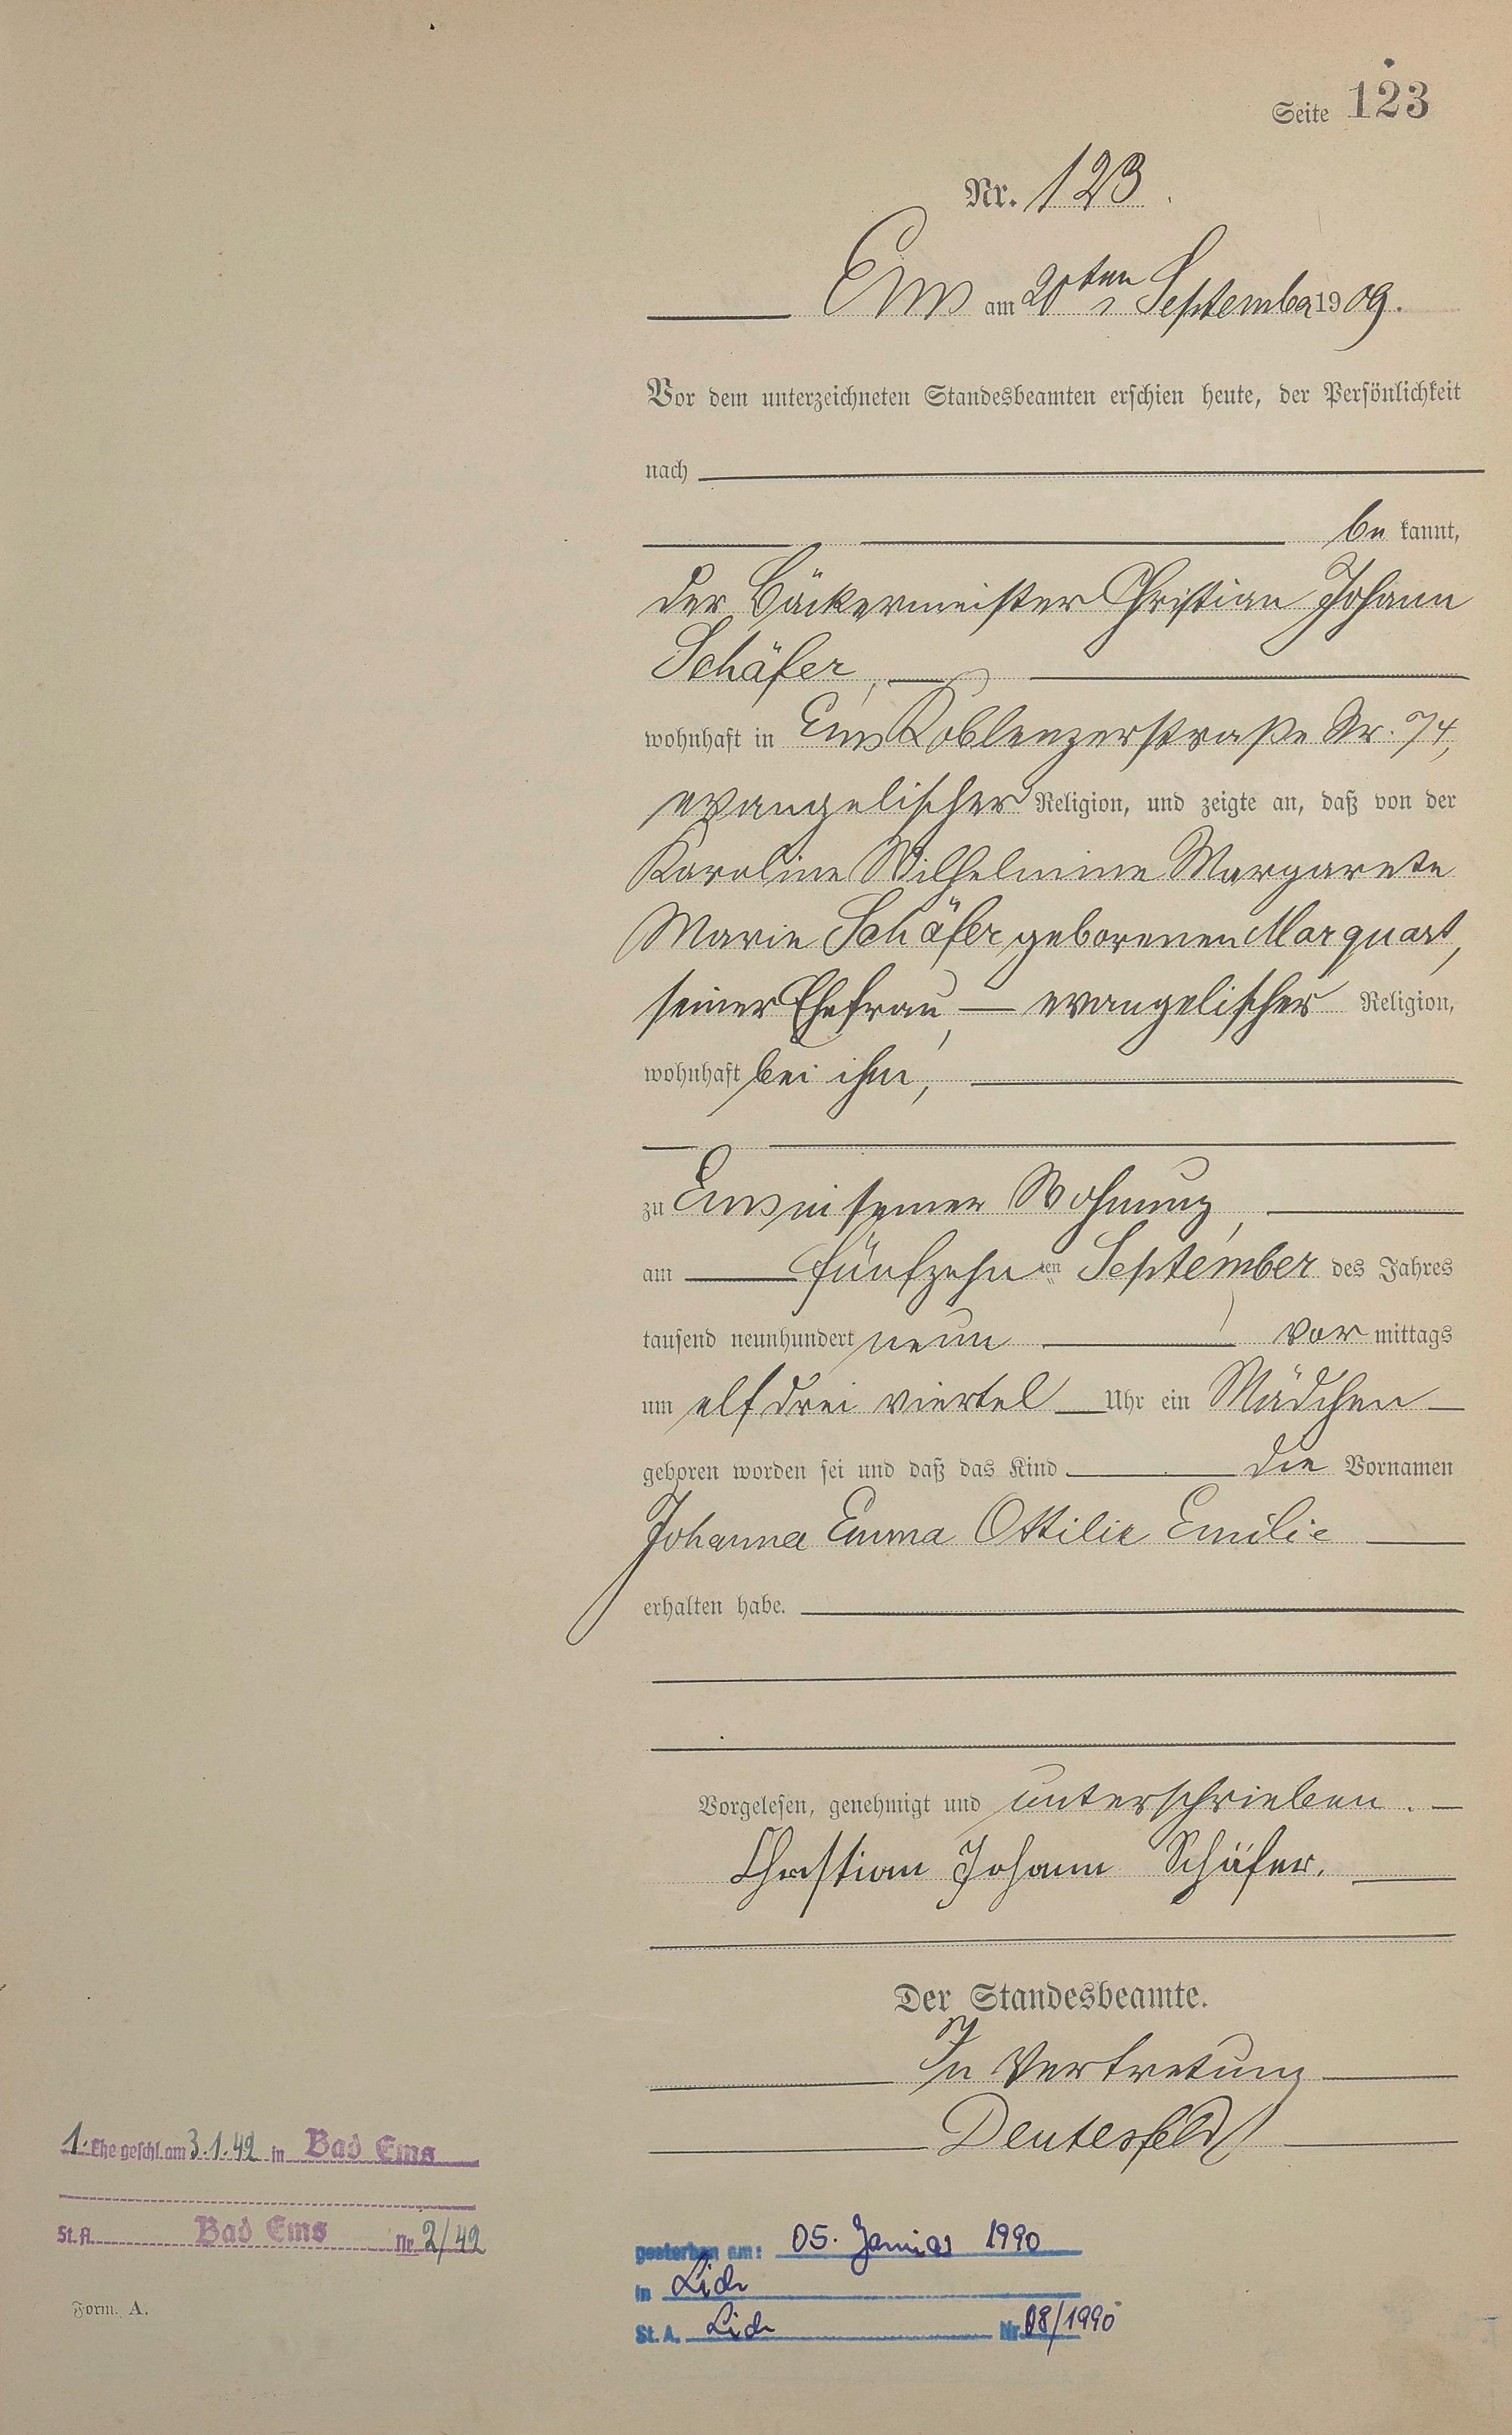 Seite 123
Nr. 123.
Ems am 20ten September 1909.
Vor dem unterzeichneten Standesbeamten erschien heute, der Persönlichkeit
nach
be kannt,
der Bäckermeister Christian Johann
Schäfer,
wohnhaft in Ems Koblenzerstraße Nr. 74,
evangelischer Religion, und zeigte an, daß von der
Karoline Wilhelmine Margarete
Marie Schäfer geborenen Marquart,
seiner Ehefrau, — evangelischer Religion,
wohnhaft bei ihm,
zu Ems in seiner Wohnung,
am fünfzehn ten September des Jahres
tausend neunhundert neun vor mittags
um elf drei viertel Uhr ein Mädchen
geboren worden sei und daß das Kind die Vornamen
Johanna Emma Ottilie Emilie
erhalten habe.
Vorgelesen, genehmigt und unterschrieben.
Christian Johann Schäfer.
Der Standesbeamte.
In Vertretung
Deutesfeld
1. Ehe geschl. am 3.1.42 in Bad Ems
St.A. Bad Ems Nr. 2/42
Form. A.
gestorben am: 05. Januar 1990
in Lich
St. A. Lich Nr. 08/1990